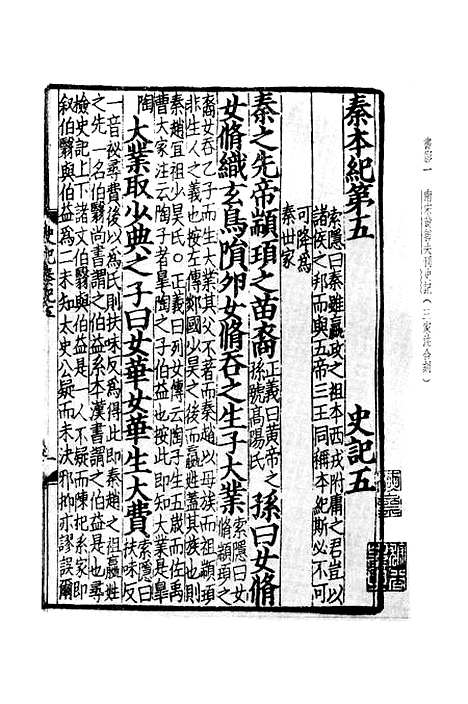 書影一 南宋黃善夫刊史記(三家注合刻)
秦本紀第五 史記五
索隱曰秦雖嬴政之祖本西戎附庸之君豈以
諸侯之邦而與五帝三王同稱本紀斯必不可
可降為
秦世家
秦之先帝顓頊之苗裔
正義曰黃帝之
孫號高陽氏
孫曰女脩
女脩織玄鳥隕卵女脩吞之生子大業
索隱曰女
脩顓頊之
裔女吞乙子而生大業其父不著而秦趙以母族而祖顓頊
非生人之義也按左傳郯國少昊之後而嬴姓蓋其族也則
秦趙宜祖少昊氏。正義曰列女傳云陶子生五歲而佐禹
曹大家注云陶子者皐陶之子伯益也按此即知大業是皐
陶
大業取少典之子曰女華女華生大費
索隱曰
扶味反
一音祕尋費後以為氏則扶味反為得此即秦趙之祖嬴姓
之先一名伯翳尚書謂之伯益系本漢書謂之伯益是也尋
檢史記上下諸文伯翳與伯益是一人不疑而陳杞系家即
叙伯翳與伯益為二未知太史公疑而未決邪抑亦謬誤爾
史記秦紀五